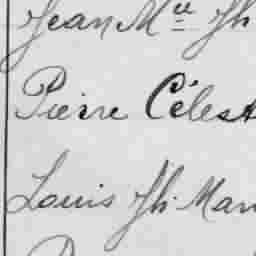 Jean Mie Jh
Pierre Célest
Louis Jh. Mar